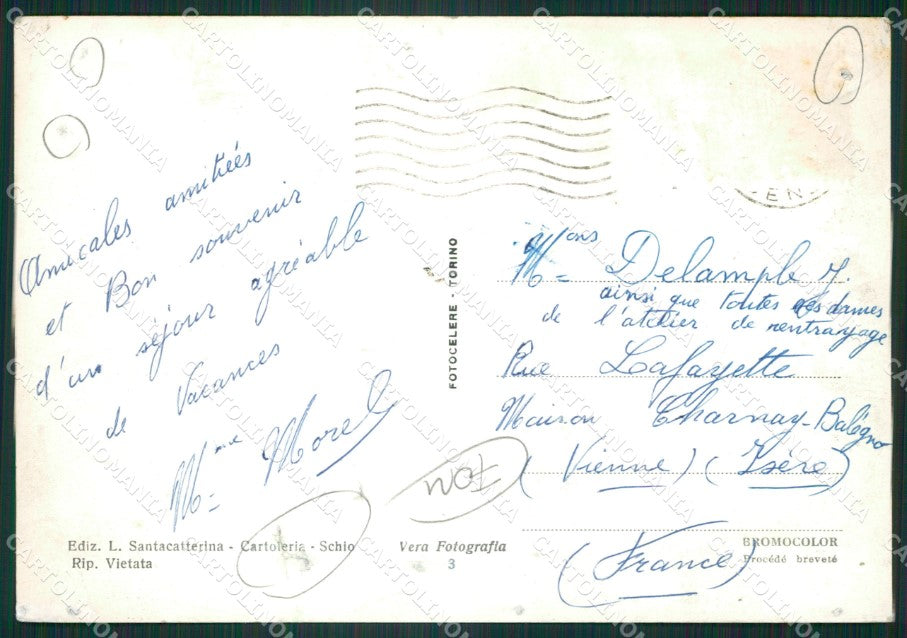 Amicales amitiées
et Bon souvenir
d'un séjour agréable
de Vacances
Mme Morel
EN
Mons
M= Delample J.
ainsi que toutes ces dames
de l'atelier de rentrayage
Rue Lafayette
Maison Charnay-Balégno
(Vienne) (Isère)
(France)
FOTOCELERE - TORINO
Ediz. L. Santacatterina - Cartoleria - Schio
Rip. Vietata
Vera Fotografia
3
BROMOCOLOR
Procédé breveté
CARTOLINOMANIA